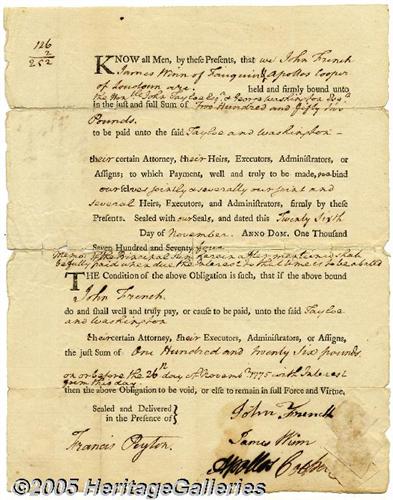 126
2
252
KNOW all Men, by these Presents, that we John French
James Winn of Fauquier & Apollos Cooper
of Loudoun are held and firmly bound unto
the Honble John Tayloe Esqr & George Washington Esqr
in the just and full Sum of Two Hundred and fifty two
Pounds.
to be paid unto the said Tayloe and Washington -
their certain Attorney, their Heirs, Executors, Administrators, or
Assigns; to which Payment, well and truly to be made, we bind
ourselves jointly & severally our joint and
several Heirs, Executors, and Administrators, firmly by these
Presents. Sealed with our Seals, and dated this Twenty Sixth
Day of November. ANNO DOM. One Thousand
Seven Hundred and Seventy four
Memo. if the Principal Sum herein after mentioned shall
be fully paid when due the Interest to that time is to be abated
THE Condition of the above Obligation is such, that if the above bound
John French.
do and shall well and truly pay, or cause to be paid, unto the said Tayloe
and Washington
their certain Attorney, their Executors, Administrators, or Assigns,
the just Sum of One Hundred and twenty Six pounds
on or before the 26th day of Novemr 1775 with Interest
from this day
then the above Obligation to be void, or else to remain in full Force and Virtue.
Sealed and Delivered
in the Presence of
John French
Francis Peyton.
James Winn
Apollos Cooper
©2005 HeritageGalleries